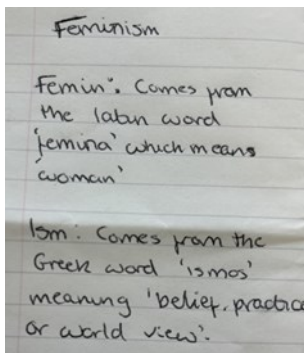 Feminism
Femin: Comes from
the latin word
'femina' which means
'woman'
Ism: Comes from the
Greek word 'ismos'
meaning 'belief, practice
or world view'.